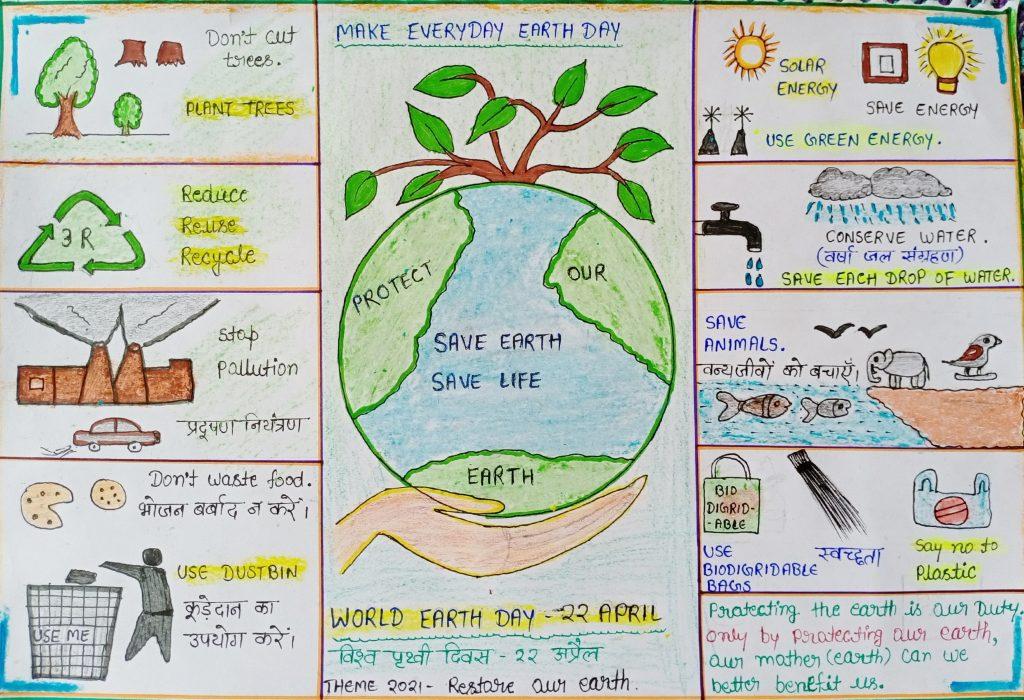 Don't cut
trees.
PLANT TREES
3 R
Reduce
Reuse
Recycle
Stop
Pallution
प्रदूषण नियंत्रण
Don't waste food.
भोजन बर्बाद न करें।
USE DUSTBIN
कूड़ेदान का
उपयोग करें।
USE ME
MAKE EVERYDAY EARTH DAY
PROTECT
OUR
SAVE EARTH
SAVE LIFE
EARTH
WORLD EARTH DAY - 22 APRIL
विश्व पृथ्वी दिवस - २२ अप्रैल
THEME 2021 - Restare our earth.
SOLAR
ENERGY
SAVE ENERGY
USE GREEN ENERGY.
CONSERVE WATER.
(वर्षा जल संग्रहण)
SAVE EACH DROP OF WATER.
SAVE
ANIMALS.
वन्यजीवों को बचाएँ।
BIO
DIGRID-
-ABLE
USE
BIODIGRIDABLE
BAGS
स्वच्छता
Say no to
Plastic
Protecting the earth is our Duty.
only by protecting our earth,
our mother (earth) can we
better benefit us.